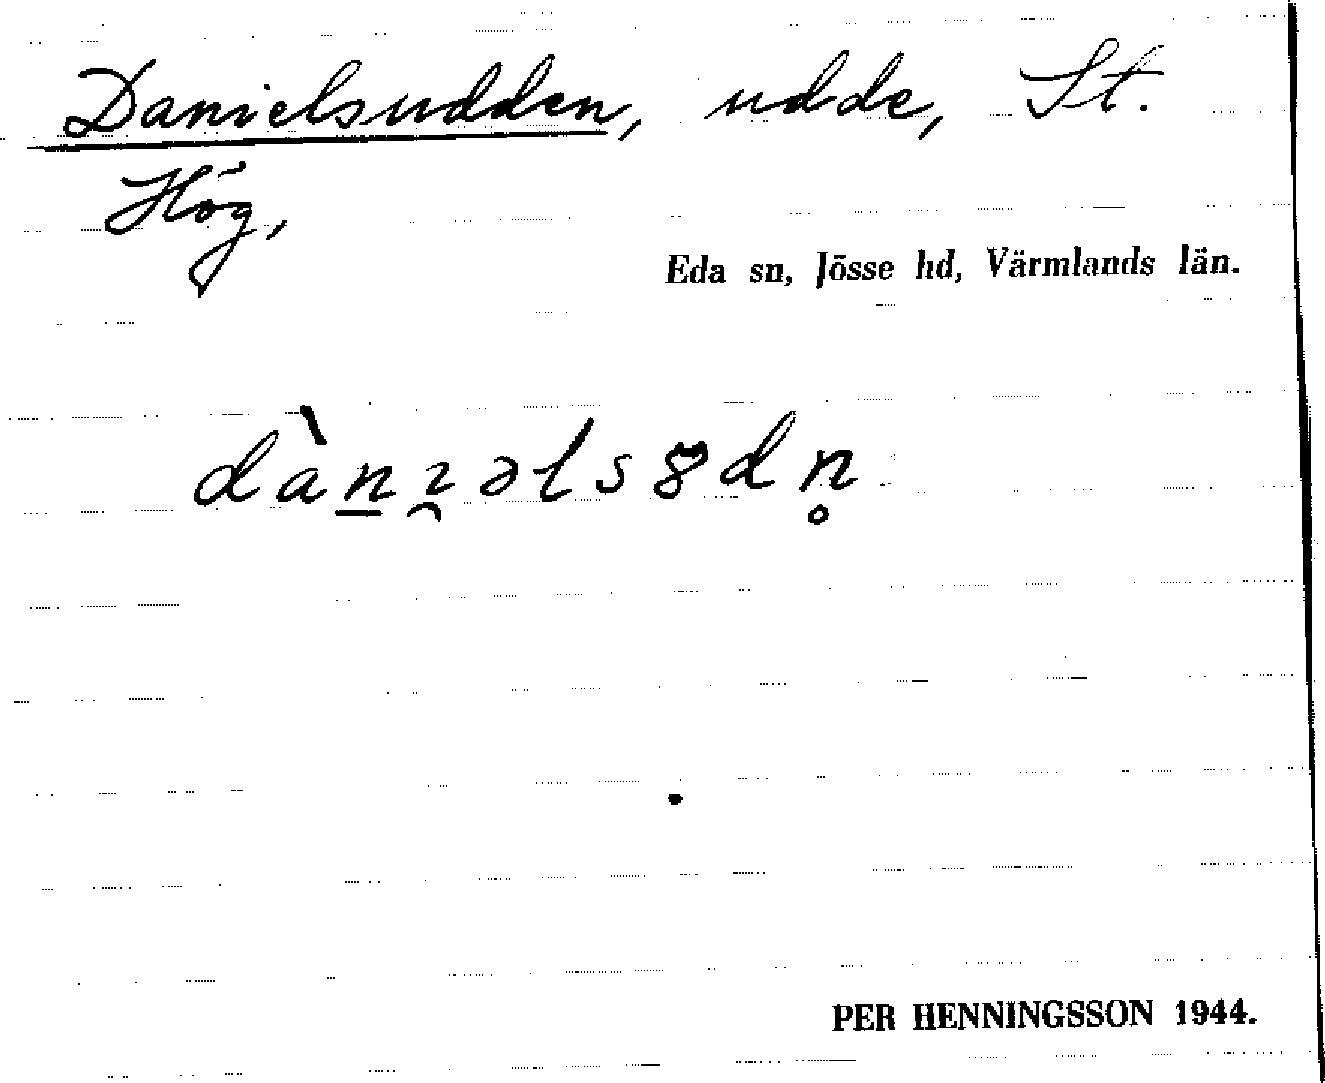 Danielsudden, udde, St.
Hög,
Eda sn, Jösse hd, Värmlands län.
dàn̲ɿ̯əlsȣdn̥
PER HENNINGSSON 1944.